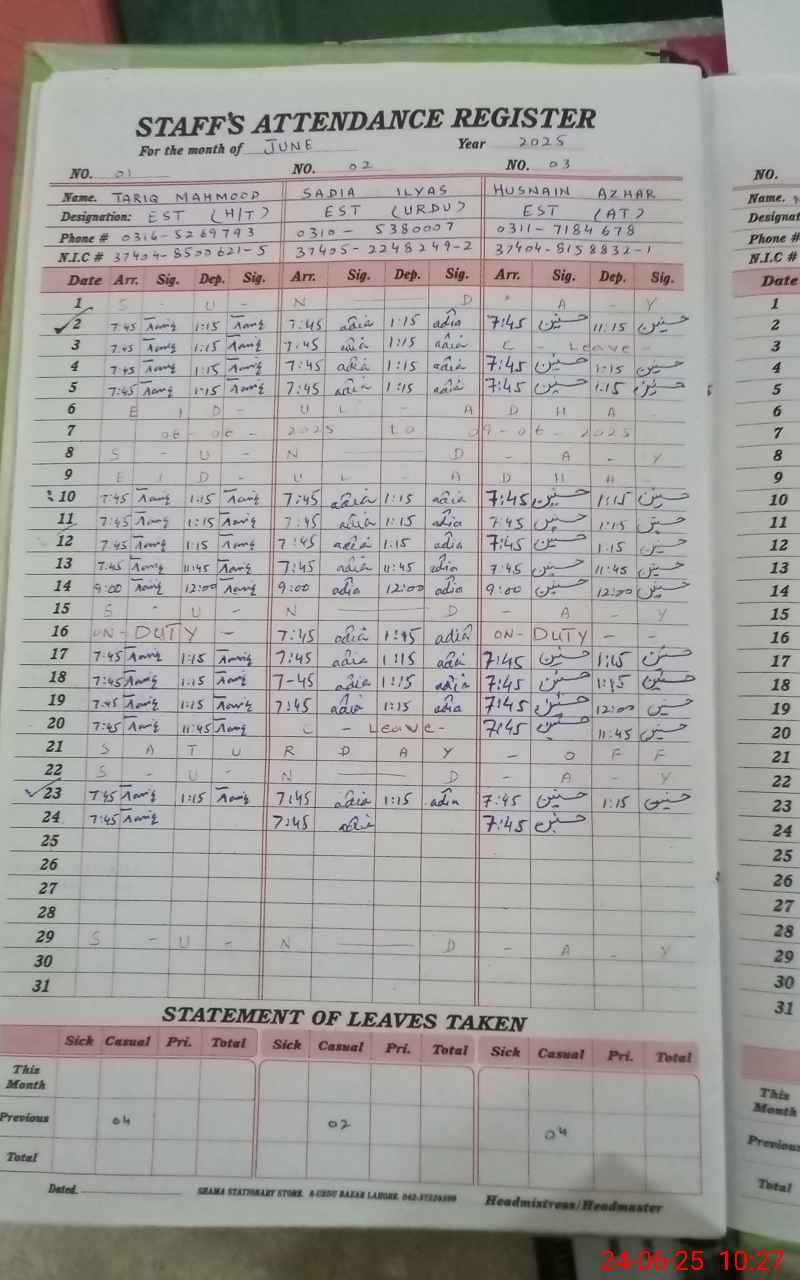 STAFF'S ATTENDANCE REGISTER
For the month of JUNE Year 2025
NO. 01 NO. 02 NO. 03 NO.
Name. TARIQ MAHMOOD SADIA ILYAS HUSNAIN AZHAR Name.
Designation: EST (H/T) EST (URDU) EST (AT) Designat
Phone # 0316-5269793 0310-5380007 0311-7184678 Phone #
N.I.C # 37404-8500621-5 37405-2248249-2 37404-8158832-1 N.I.C #
Date Arr. Sig. Dep. Sig. Arr. Sig. Dep. Sig. Arr. Sig. Dep. Sig. Date
1 S - U - N D - A - Y 1
2 7:45 Tariq 1:15 Tariq 7:45 adia 1:15 adia 7:45 حسنین 11:15 حسنین 2
3 7:45 Tariq 1:15 Tariq 7:45 adia 1:15 adia C - Leave - 3
4 7:45 Tariq 1:15 Tariq 7:45 adia 1:15 adia 7:45 حسنین 1:15 حسنین 4
5 7:45 Tariq 1:15 Tariq 7:45 adia 1:15 adia 7:45 حسنین 1:15 حسنین 5
6 E I D - U L - A D H A 6
7 06-06-2025 to 09-06-2025 7
8 S - U - N D - A - Y 8
9 E I D - U L - A D H A 9
10 7:45 Tariq 1:15 Tariq 7:45 adia 1:15 adia 7:45 حسنین 1:15 حسنین 10
11 7:45 Tariq 1:15 Tariq 7:45 adia 1:15 adia 7:45 حسنین 1:15 حسنین 11
12 7:45 Tariq 1:15 Tariq 7:45 adia 1:15 adia 7:45 حسنین 1:15 حسنین 12
13 7:45 Tariq 11:45 Tariq 7:45 adia 11:45 adia 7:45 حسنین 11:45 حسنین 13
14 9:00 Tariq 12:00 Tariq 9:00 adia 12:00 adia 9:00 حسنین 12:00 حسنین 14
15 S - U - N D - A - Y 15
16 ON-DUTY - 7:45 adia 1:45 adia ON-DUTY - - 16
17 7:45 Tariq 1:15 Tariq 7:45 adia 1:15 adia 7:45 حسنین 1:15 حسنین 17
18 7:45 Tariq 1:15 Tariq 7-45 adia 1:15 adia 7:45 حسنین 1:15 حسنین 18
19 7:45 Tariq 1:15 Tariq 7:45 adia 1:15 adia 7:45 حسنین 12:00 حسنین 19
20 7:45 Tariq 11:45 Tariq C - Leave - 7:45 حسنین 11:45 حسنین 20
21 S A T U R D A Y - O F F 21
22 S - U - N D - A - Y 22
23 7:45 Tariq 1:15 Tariq 7:45 adia 1:15 adia 7:45 حسنین 1:15 حسنین 23
24 7:45 Tariq 7:45 adia 7:45 حسنین 24
25 25
26 26
27 27
28 28
29 S - U - N D - A - Y 29
30 30
31 31
STATEMENT OF LEAVES TAKEN
Sick Casual Pri. Total Sick Casual Pri. Total Sick Casual Pri. Total
This Month This Month
Previous 04 02 04 Previous
Total Total
Dated. SHAMA STATIONARY STORE. 8-URDU BAZAR LAHORE. Headmistress/Headmaster
24-06-25 10:27